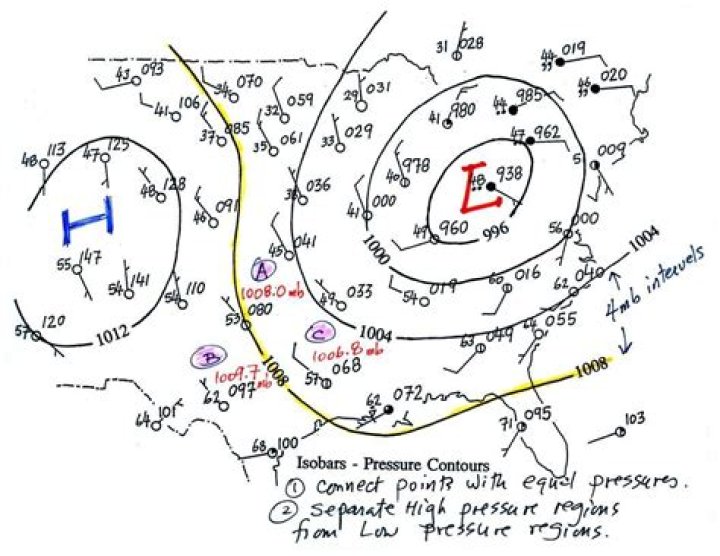 31 028
44 019
43 093
34 070
46 020
106
41
32 059
29 031
980
41
44 985
37 085
35 061
33 029
47 962
48 113
47 125
978
40
5 009
48 128
38 036
48 938
L
H
46 091
41 000
49 960
996
56 000
1000
45 041
1004
55 147
A
60 016
040
54 141
54 110
1008.0 mb
49 033
54 019
62
4mb intervals
53 080
57 120
1012
C
1004
64 055
B
1006.8 mb
63 049
1009.7 mb
1008
57 068
1008
62 097
62 072
64 101
71 095
103
68 100
Isobars - Pressure Contours
① Connect points with equal pressures.
② Separate High pressure regions
from Low pressure regions.